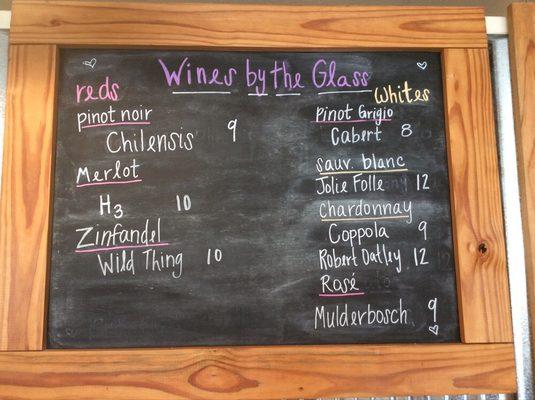 Wines by the Glass
reds
pinot noir
Chilensis 9
Merlot
H3 10
Zinfandel
Wild Thing 10
Whites
Pinot Grigio
Cabert 8
sauv. blanc
Jolie Folle 12
chardonnay
Coppola 9
Robert Oatley 12
Rosé
Mulderbosch 9